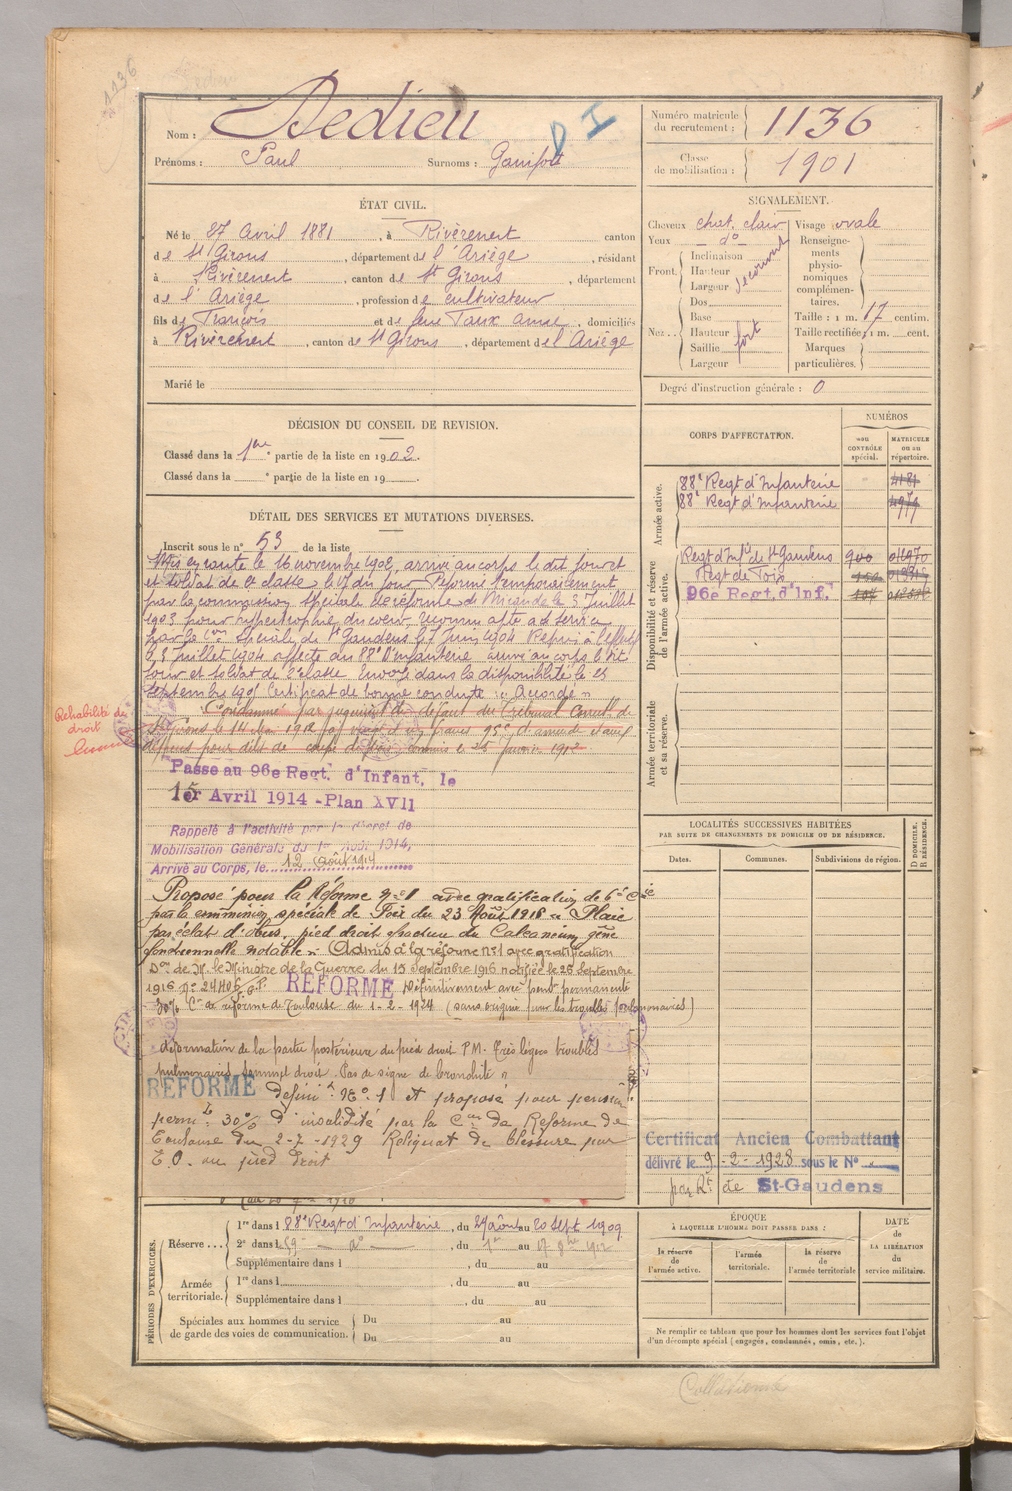 1136
Nom : Dedieu
D I
Prénoms : Paul Surnoms :
Numéro matricule du recrutement : 1136
Classe de mobilisation : 1901
ÉTAT CIVIL.
Né le 27 Avril 1881, à Rivèrenert canton
de St Girons, département de l'Ariège, résidant
à Rivèrenert, canton de St Girons, département
de l'Ariège, profession de cultivateur
fils de François et de feue Taux Anne, domiciliés
à Rivèrenert, canton de St Girons, département de l'Ariège
Marié le
SIGNALEMENT.
Cheveux chat. clair
Yeux do
Front. Inclinaison
Hauteur
Largeur
découvert
Nez.. Dos
Base
Hauteur
Saillie
Largeur
fort
Visage ovale
Renseignements physionomiques complémentaires.
Taille : 1 m. 17 centim.
Taille rectifiée, 1 m. cent.
Marques particulières.
Degré d'instruction générale : 0
DÉCISION DU CONSEIL DE REVISION.
Classé dans la 1re partie de la liste en 1902.
Classé dans la e partie de la liste en 19
DÉTAIL DES SERVICES ET MUTATIONS DIVERSES.
Inscrit sous le n° 53 de la liste
Mis en route le 16 novembre 1902, arrivé au corps le dit jour et
et soldat de 2e classe le 17 du jour Réformé temporairement
par la commission spéciale de réforme de Mirande le 3 Juillet
1903 pour hypertrophie du coeur. Reconnu apte au service
par la Con spéciale de St Gaudens le 7 Juin 1904
3 Juillet 1904 affecté au 88e D'infanterie arrivé au corps le dit
jour et soldat de 2e classe Envoyé dans la disponibilité le 23
Septembre 1905 Certificat de bonne conduite "Accordé"
Réhabilité de droit
Condamné par jugement de défaut du Tribunal Correl. de
St Girons le 14 Mai 1912
dépens pour délit de coupe commis le 25 Janvier 1912
Passe au 96e Regt. d'Infant. le
1er Avril 1914 - Plan XVII
Rappelé à l'activité par le décret de
Mobilisation Générale du 1er Août 1914,
Arrivé au Corps, le 12 Août 1914
Proposé pour la Réforme N°1 avec gratification de 6e Cie
par la commission spéciale de Foix du 23 Août 1916 "Plaie
par éclat d'obus, pied droit fracture du Calcanéum gêne
fonctionnelle notable". Admis à la réforme n°1 avec gratification
Don de M. le Ministre de la Guerre du 15 septembre 1916 notifiée le 26 septembre
1916 n° 24406 RÉFORMÉ Définitivement avec pension permanente
30% Con de réforme de Toulouse du 1-2-1924 (sans origine pour les troubles pulmonaires)
déformation de la partie postérieure du pied droit P.M. très légers troubles
pulmonaires sommet droit. Pas de signe de bronchite"
RÉFORMÉ défini t N° 1 et proposé pour pension
perm te 30% d'invalidité par la Con de Réforme de
Toulouse du 2-7-1929 Reliquat de blessure par
E.O. au pied droit
CORPS D'AFFECTATION.
NUMÉROS
au CONTRÔLE spécial.
MATRICULE ou au répertoire.
Armée active.
88e Regt d'Infanterie
88e Regt d'Infanterie
Disponibilité et réserve de l'armée active.
Regt d'Infie de St Gaudens 900
Regt de Foix
96e Regt. d'Inf.
Armée territoriale et sa réserve.
LOCALITÉS SUCCESSIVES HABITÉES
PAR SUITE DE CHANGEMENTS DE DOMICILE OU DE RÉSIDENCE.
Dates. Communes. Subdivisions de région.
D DOMICILE. R RÉSIDENCE.
Certificat Ancien Combattant
délivré le 9-2-1928 sous le N°
par Rt de St-Gaudens
PÉRIODES D'EXERCICES.
Réserve... 1re dans l 88e Regt d'Infanterie, du 29 août au 20 Sept 1909
2e dans l 59 do, du 1er au 17 1912
Supplémentaire dans l, du au
Armée territoriale. 1re dans l, du au
Supplémentaire dans l, du au
Spéciales aux hommes du service de garde des voies de communication. Du au
Du au
ÉPOQUE
À LAQUELLE L'HOMME DOIT PASSER DANS :
la réserve de l'armée active.
l'armée territoriale.
la réserve de l'armée territoriale
DATE de LA LIBÉRATION du service militaire.
Ne remplir ce tableau que pour les hommes dont les services font l'objet
d'un décompte spécial (engagés, condamnés, omis, etc.).
Collationné